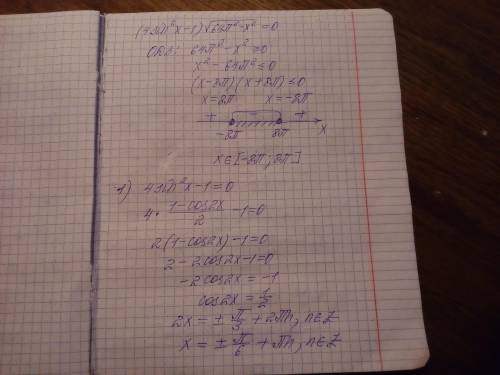 (4sin²x-1)√64π²-x² =0
ОДЗ: 64π²-x² ≥0
x²-64π² ≤0
(x-8π)(x+8π) ≤0
x=8π x=-8π
+ - +
-8π 8π x
x∈[-8π; 8π]
1) 4sin²x-1=0
4· (1-cos2x)/2 -1=0
2(1-cos2x)-1=0
2-2cos2x-1=0
-2cos2x = -1
cos2x = 1/2
2x = ± π/3 + 2πn, n∈Z
x = ± π/6 + πn, n∈Z